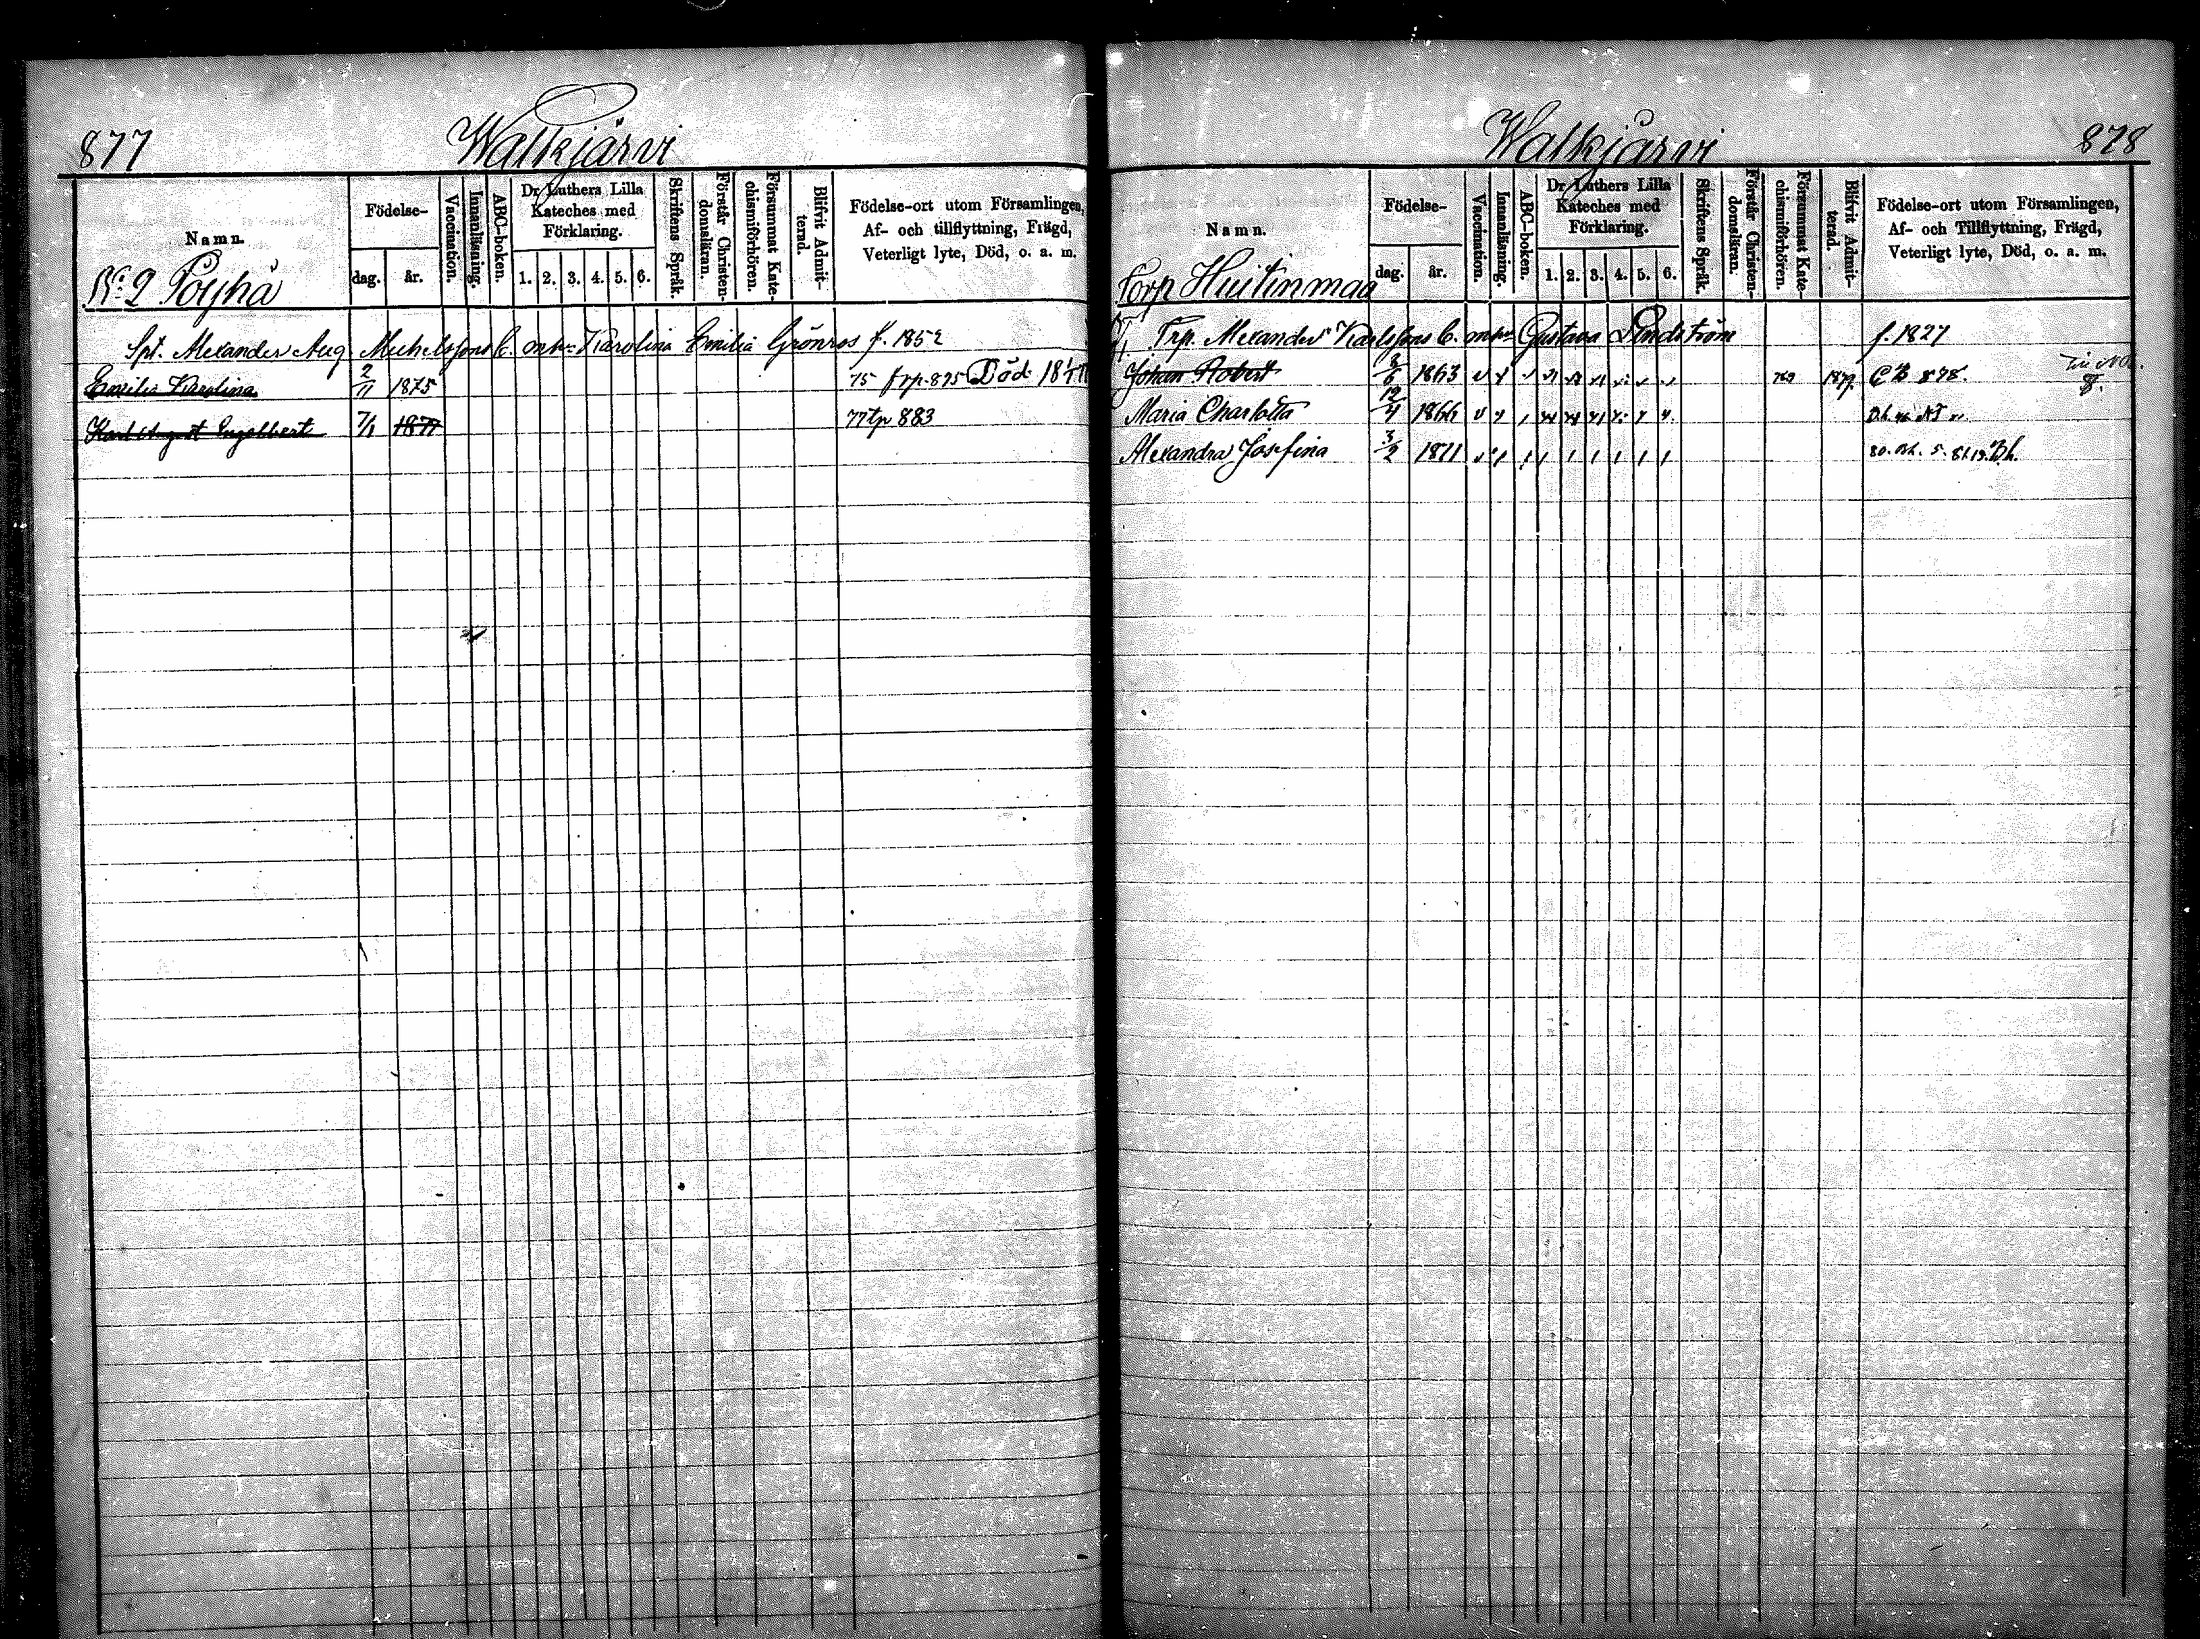 877 Walkjärvi
Namn.
Födelse-
dag. år.
Vaccination.
Innanläsning.
ABC-boken.
Dr Luthers Lilla
Kateches med
Förklaring.
1. 2. 3. 4. 5. 6.
Skriftens Språk.
Förstår Christen-
domsläran.
Försummat Kate-
chismiförhören.
Blifvit Admit-
terad.
Födelse-ort utom Församlingen,
Af- och tillflyttning, Frägd,
Veterligt lyte, Död, o. a. m.
No 2 Pöyhä
Spt. Alexander Aug. Michelssons B. m hu Karolina Emilia Grönros f. 1852
Emilia Karolina 2/11 1875 75 frp. 875 Död
Karl August Engelbert 7/1 1877 77 tp 883
Walkjärvi 878
Namn.
Födelse-
dag. år.
Vaccination.
Innanläsning.
ABC-boken.
Dr Luthers Lilla
Kateches med
Förklaring.
1. 2. 3. 4. 5. 6.
Skriftens Språk.
Förstår Christen-
domsläran.
Försummat Kate-
chismiförhören.
Blifvit Admit-
terad.
Födelse-ort utom Församlingen,
Af- och Tillflyttning, Frägd,
Veterligt lyte, Död, o. a. m.
Torp Huitinmaa
Trp. Alexander Karlssons B. m hu Gustava Lindström f. 1827
Johan Robert 3/6 1863 1879 878.
Maria Charlotta 12/4 1866
Alexandra Josefina 3/2 1871